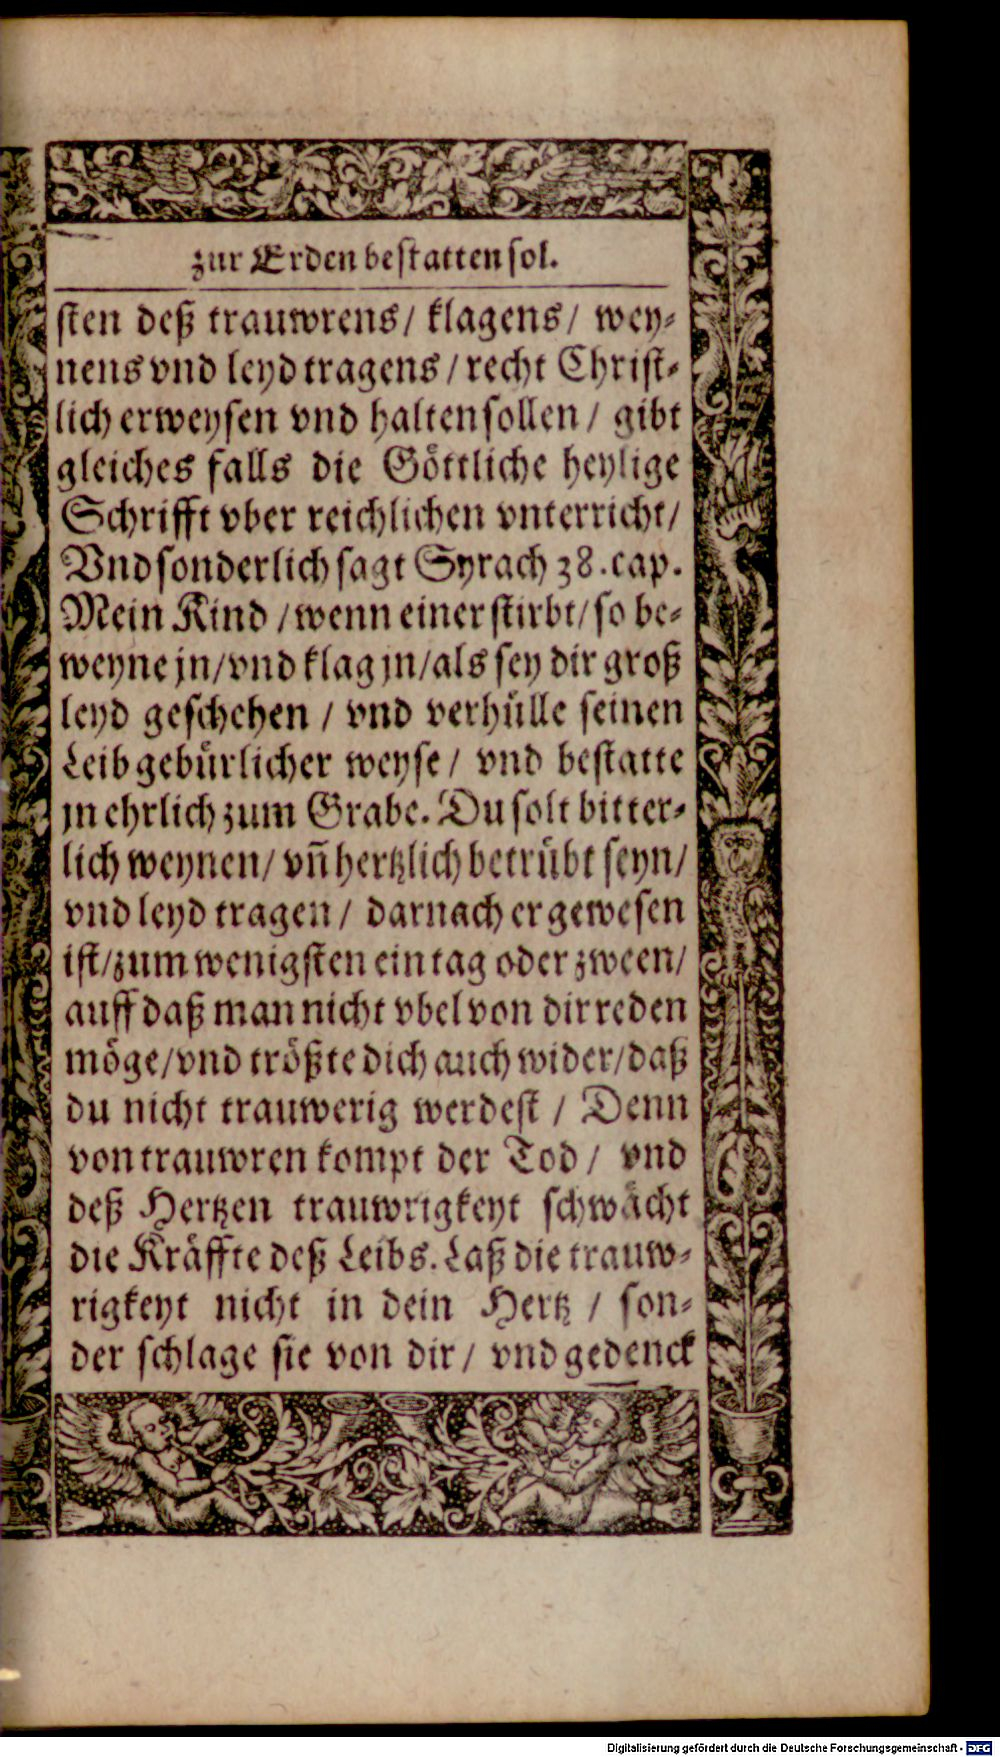 zur Erden bestatten sol.
sten deß trauwrens/ klagens/ wey⸗
nens vnd leyd tragens/ recht Christ⸗
lich erweysen vnd halten sollen/ gibt
gleiches falls die Göttliche heylige
Schrifft vber reichlichen vnterricht/
Vnd sonderlich sagt Syrach 38. cap.
Mein Kind/ wenn einer stirbt/ so be⸗
weyne jn/ vnd klag jn/ als sey dir groß
leyd geschehen/ vnd verhülle seinen
Leib gebürlicher weyse/ vnd bestatte
jn ehrlich zum Grabe. Du solt bitter⸗
lich weynen/ vñ hertzlich betrübt seyn/
vnd leyd tragen/ darnach er gewesen
ist/ zum wenigsten ein tag oder zween/
auff daß man nicht vbel von dir reden
möge/ vnd trößte dich auch wider/ daß
du nicht trauwerig werdest/ Denn
von trauwren kompt der Tod/ vnd
deß Hertzen trauwrigkeyt schwächt
die Kräffte deß Leibs. Laß die trauw⸗
rigkeyt nicht in dein Hertz/ son⸗
der schlage sie von dir/ vnd gedenck
Digitalisierung gefördert durch die Deutsche Forschungsgemeinschaft - DFG